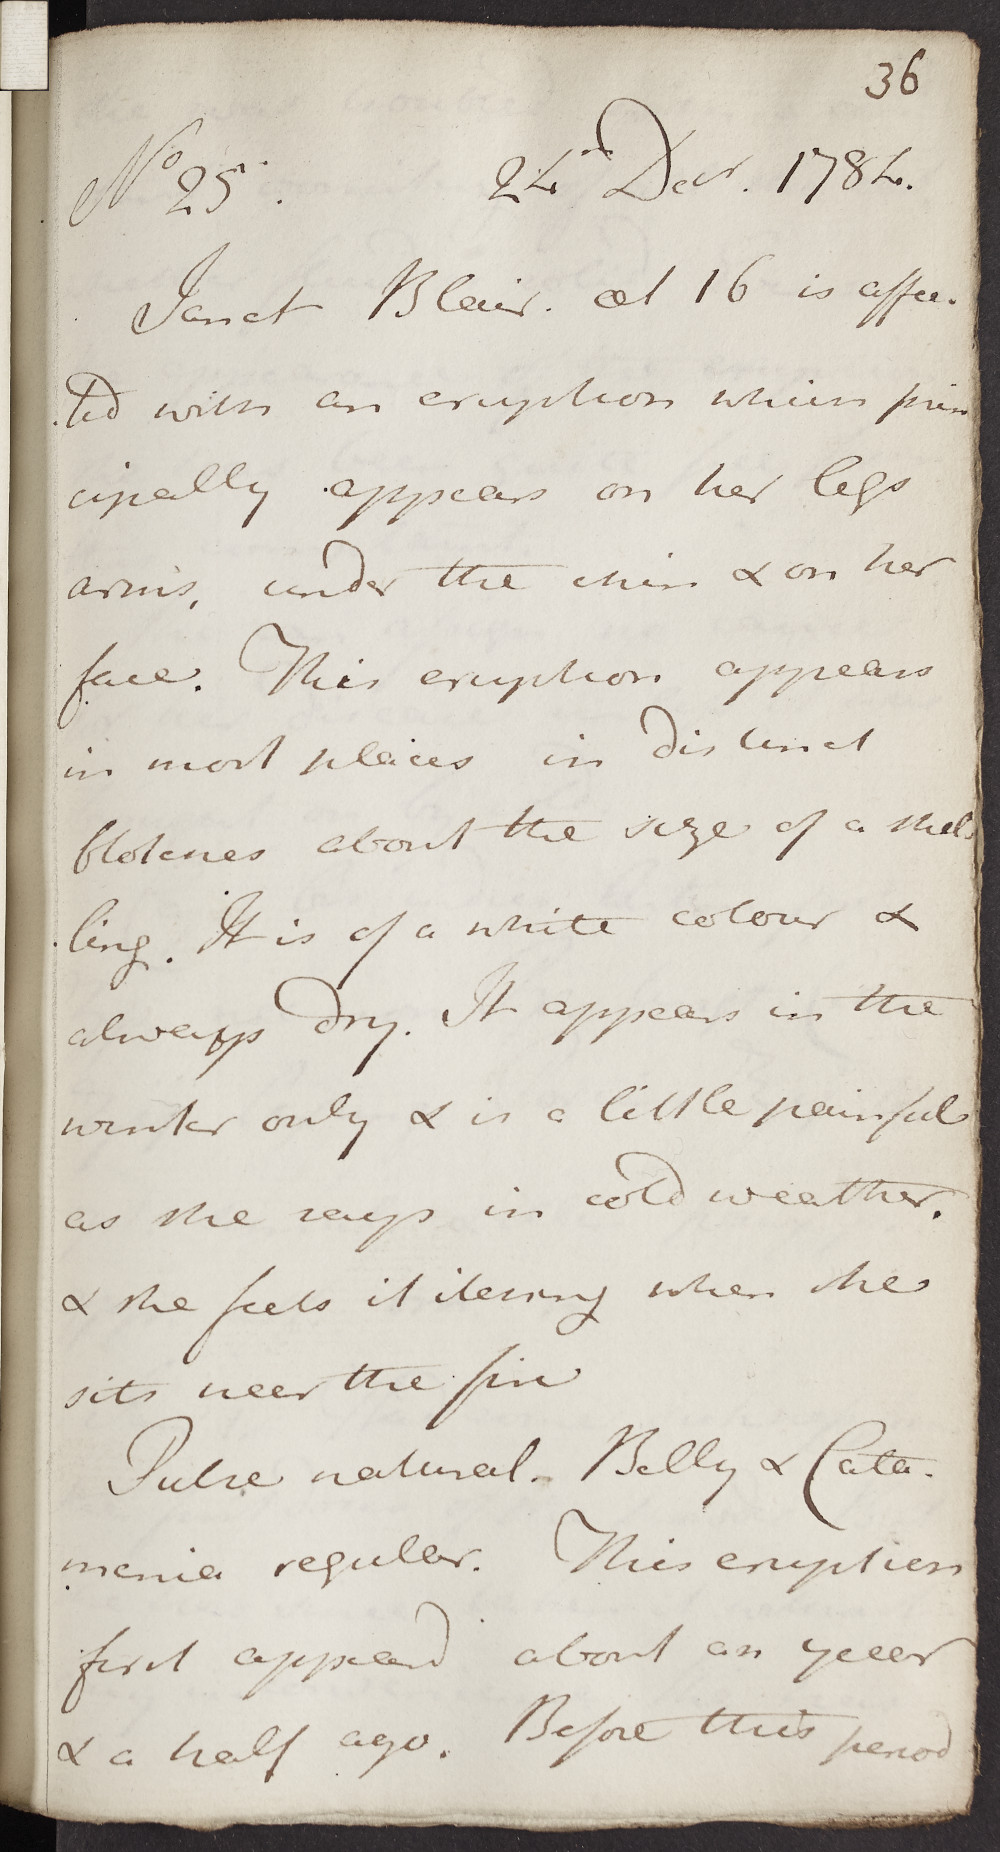 36
No 25. 24th Decr. 1784.
Janet Blair. æt 16 is affec-
ted with an eruption which prin
cipally appears on her legs
arms, under the chin & on her
face. This eruption appears
in most places in distinct
blotches about the size of a shil
ling. It is of a white colour &
always dry. It appears in the
winter only & is a little painful
as she says in cold weather.
& she feels it itching when she
sits near the fire
Pulse natural. Belly & Cata-
menia regular. This eruption
first appeard about an year
& a half ago. Before this period